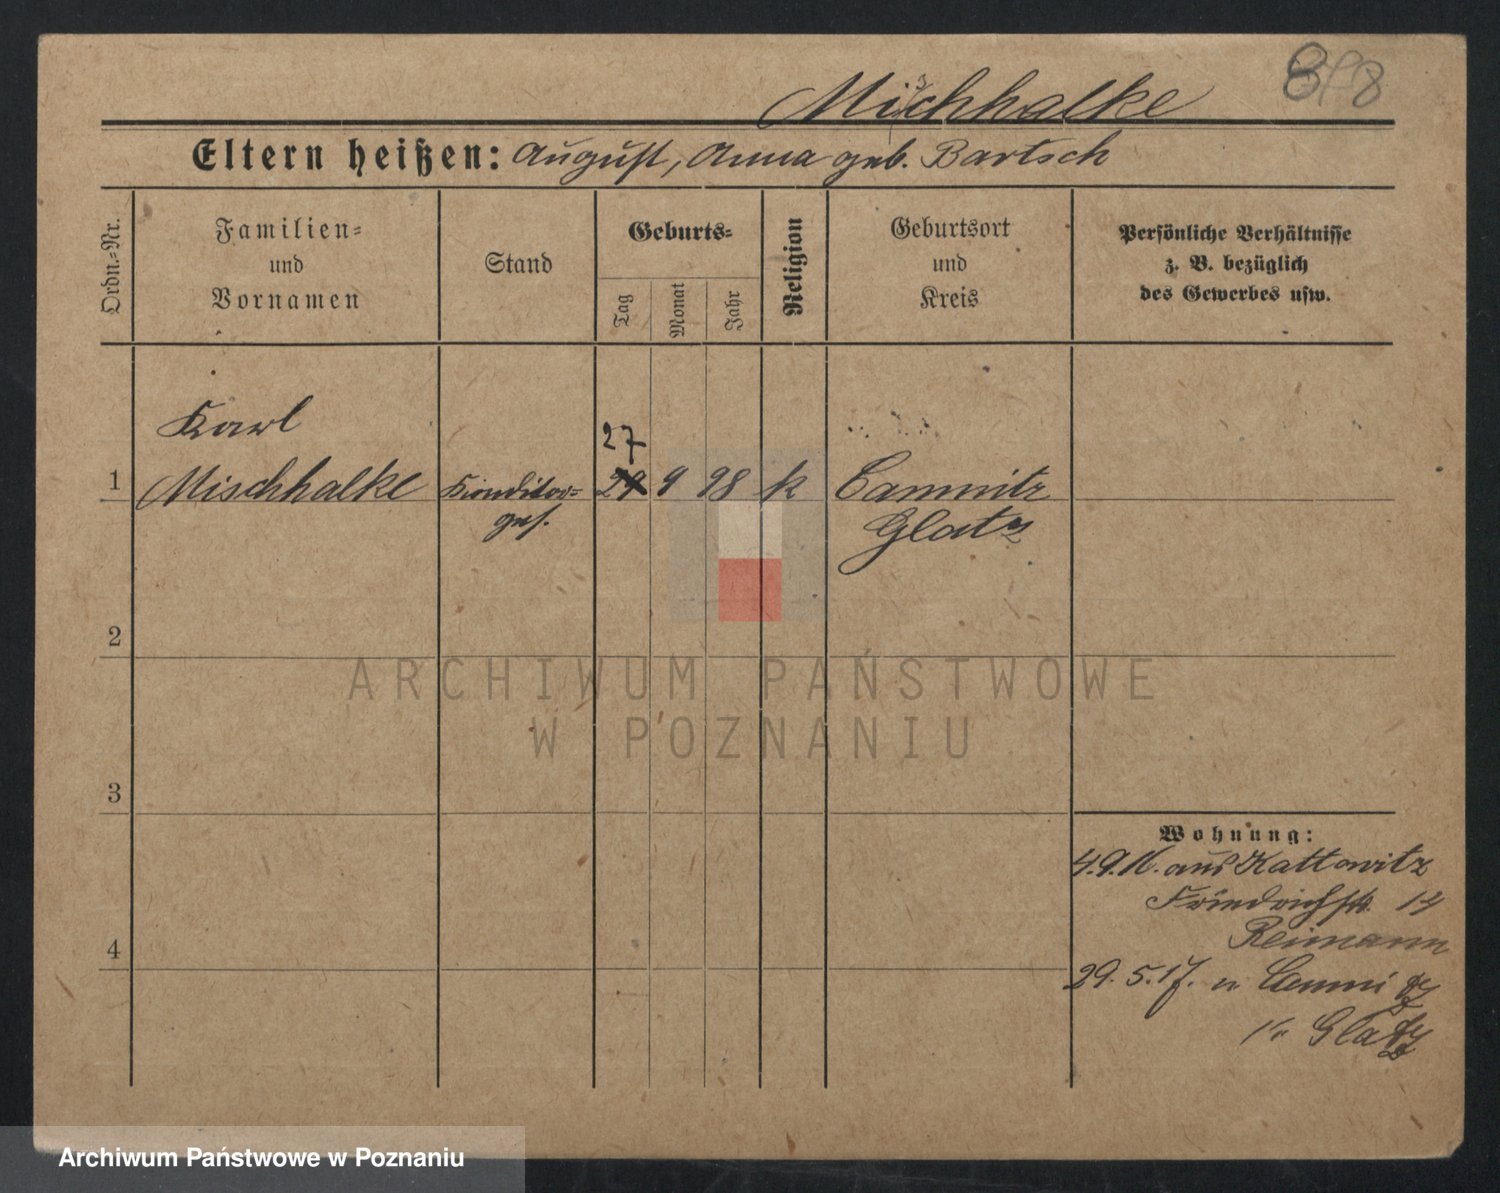 Mischhalke
Eltern heißen: August, Anna geb. Bartsch
Ordn.-Nr.
Familien-
und
Vornamen
Stand
Geburts-
Tag
Monat
Jahr
Religion
Geburtsort
und
Kreis
Persönliche Verhältnisse
z. B. bezüglich
des Gewerbes usw.
Karl
27
1 Mischhalke Konditor- 29 9 98 k Camnitz
ges. Glatz
2
3
4
ARCHIWUM PAŃSTWOWE
W POZNANIU
Wohnung:
4.9.16. aus Kattowitz
Friedrichstr. 14
Reimann
29.5.17. n. Camnitz
Kr. Glatz
Archiwum Państwowe w Poznaniu